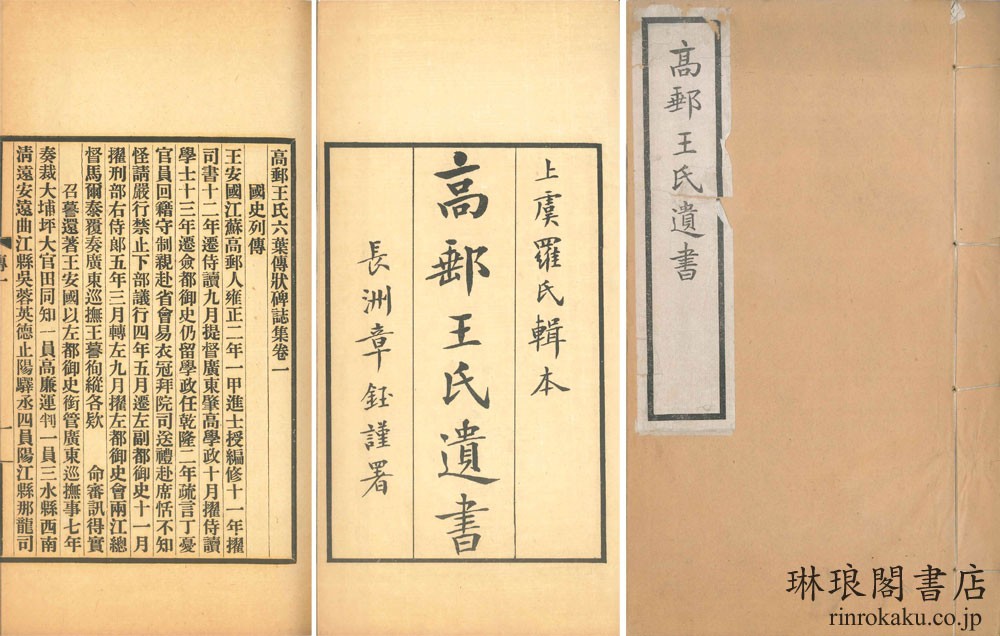 高郵王氏遺書
上虞羅氏輯本
高郵王氏遺書
長洲章鈺謹署
高郵王氏六葉傳狀碑誌集卷一
國史列傳
王安國江蘇高郵人雍正二年一甲進士授編修十一年擢
司書十二年遷侍讀九月提督廣東肇高學政十月擢侍讀
學士十三年遷僉都御史仍留學政任乾隆二年疏言丁憂
官員回籍守制親赴省會易衣冠拜院司送禮赴席恬不知
怪請嚴行禁止下部議行四年五月遷左副都御史十一月
擢刑部右侍郎五年三月轉左九月擢左都御史會兩江總
督馬爾泰覆奏廣東巡撫王謩徇縱各欵　命審訊得實
召謩還著王安國以左都御史銜管廣東巡撫事七年
奏裁大埔坪大官田同知一員高廉運判一員三水縣西南
淸遠安遠曲江縣吳蓉英德止陽驛丞四員陽江縣那龍司
傳一
琳琅閣書店
rinrokaku.co.jp